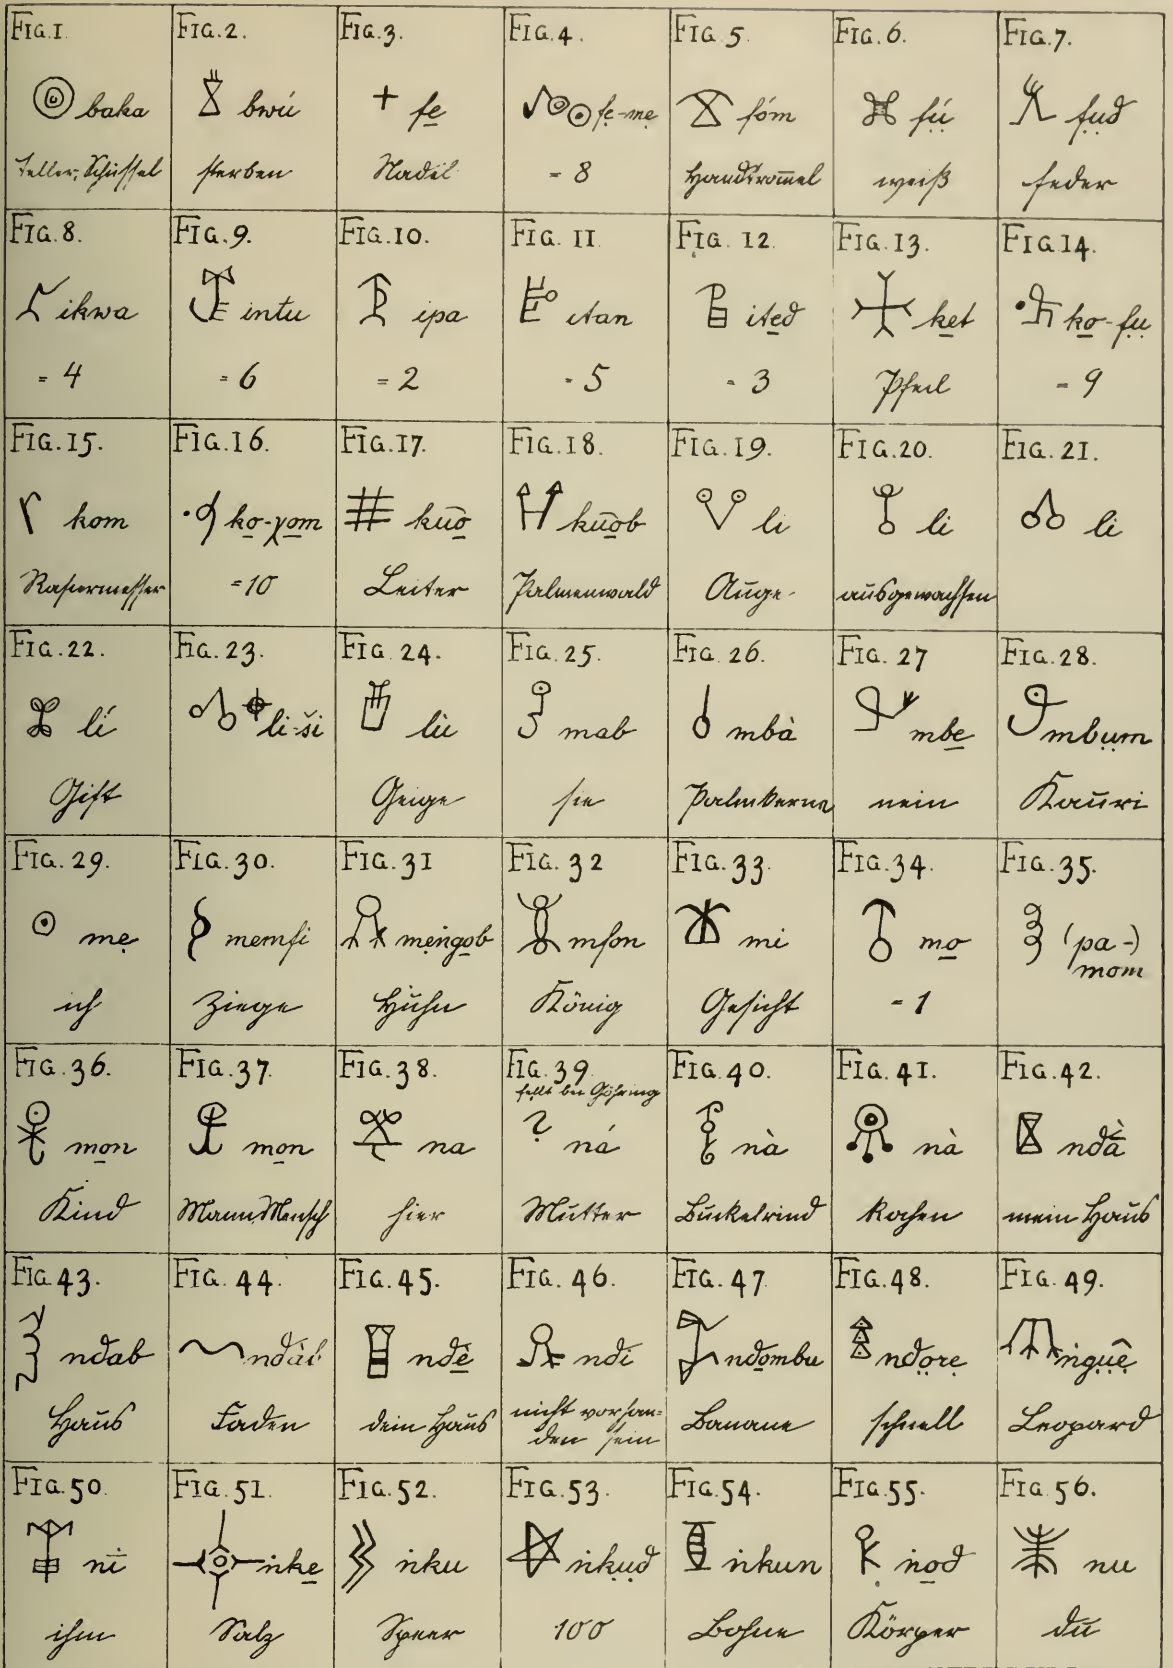 FIG.1.
baka
Teller, Schüssel
FIG.2.
bwú
sterben
FIG.3.
fe̱
Nadel
FIG.4.
fẹ-mẹ
= 8
FIG.5.
fóm
Handtrom̄el
FIG.6.
fụ́
weiß
FIG.7.
fụđ
Feder
FIG.8.
ikwa
= 4
FIG.9.
intu
= 6
FIG.10.
ipa
= 2
FIG.11
itan
= 5
FIG.12
ite̱đ
= 3
FIG.13.
ke̱t
Pfeil
FIG.14.
ko̱-fụ
= 9
FIG.15.
kom
Rasiermesser
FIG.16.
ko̱-yo̱m
= 10
FIG.17.
kūo̱
Leiter
FIG.18.
kūo̱b
Palmenwald
FIG.19.
li
Auge
FIG.20.
li
ausgewachsen
FIG.21.
li
FIG.22.
lí
Gift
FIG.23.
li-ši
FIG.24.
lù
Geige
FIG.25.
mab
sie
FIG.26.
mbà
Palmkerne
FIG.27
mbe̱
nein
FIG.28.
mbụm
Kauri
FIG.29.
mẹ
ich
FIG.30.
memfi
Ziege
FIG.31
mẹngo̱b
Huhn
FIG.32
mfon
König
FIG.33.
mi
Gesicht
FIG.34.
mo̱
= 1
FIG.35.
(pa-)
mom
FIG.36.
mo̱n
Kind
FIG.37.
mo̱n
Mann, Mensch
FIG.38.
na
hier
FIG.39.
fehlt bei Göhring
? ná
Mutter
FIG.40.
nà
Buckelrind
FIG.41.
nà
kochen
FIG.42.
nđā̀
mein Haus
FIG.43.
nđab
Haus
FIG.44.
nđáb
Faden
FIG.45.
nđè̱
dein Haus
FIG.46.
nđi
nicht vorhan-
den sein
FIG.47
nđo̱mbu
Banane
FIG.48.
nđọrẹ
schnell
FIG.49.
ṅgụệ
Leopard
FIG.50.
nī
ihm
FIG.51.
ṅke̱
Salz
FIG.52.
ṅku
Speer
FIG.53.
ṅkụđ
100
FIG.54.
ṅkun
Bohne
FIG.55.
ṅo̱đ
Körper
FIG.56.
nu
du